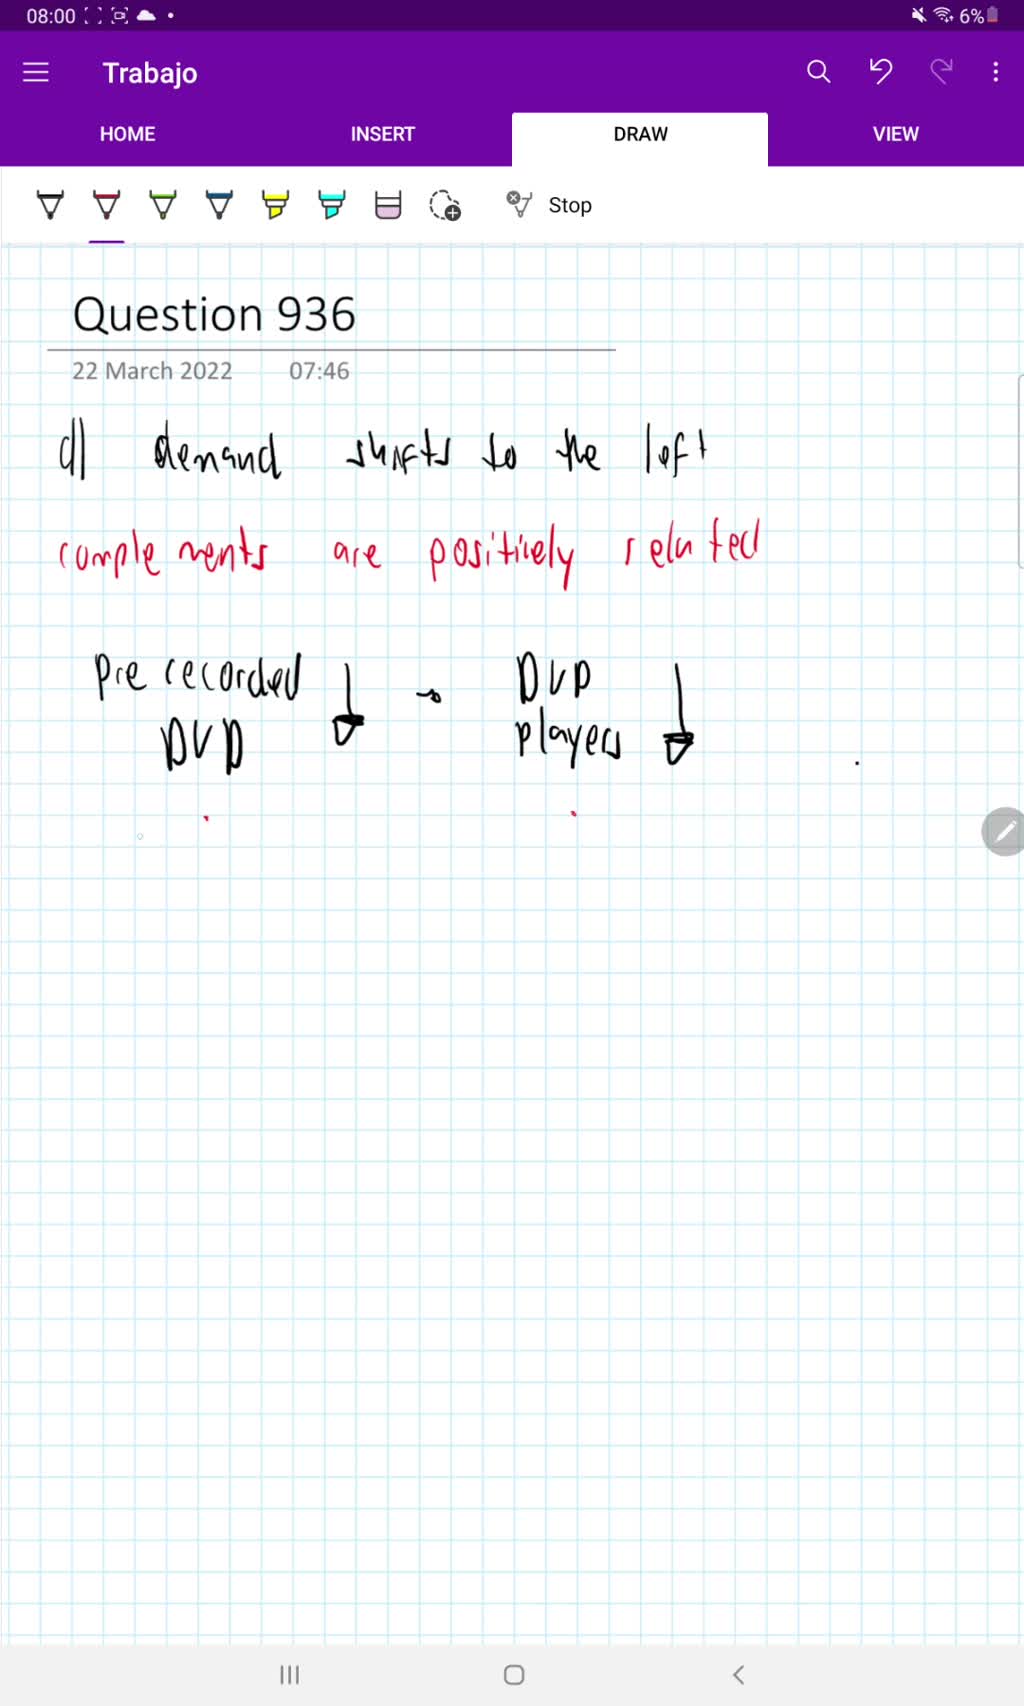 08:00 6%
Trabajo
HOME INSERT DRAW VIEW
Stop
Question 936
22 March 2022 07:46
d) demand shifts to the left
complements are positively related
Pre recorded DVD
DVD players